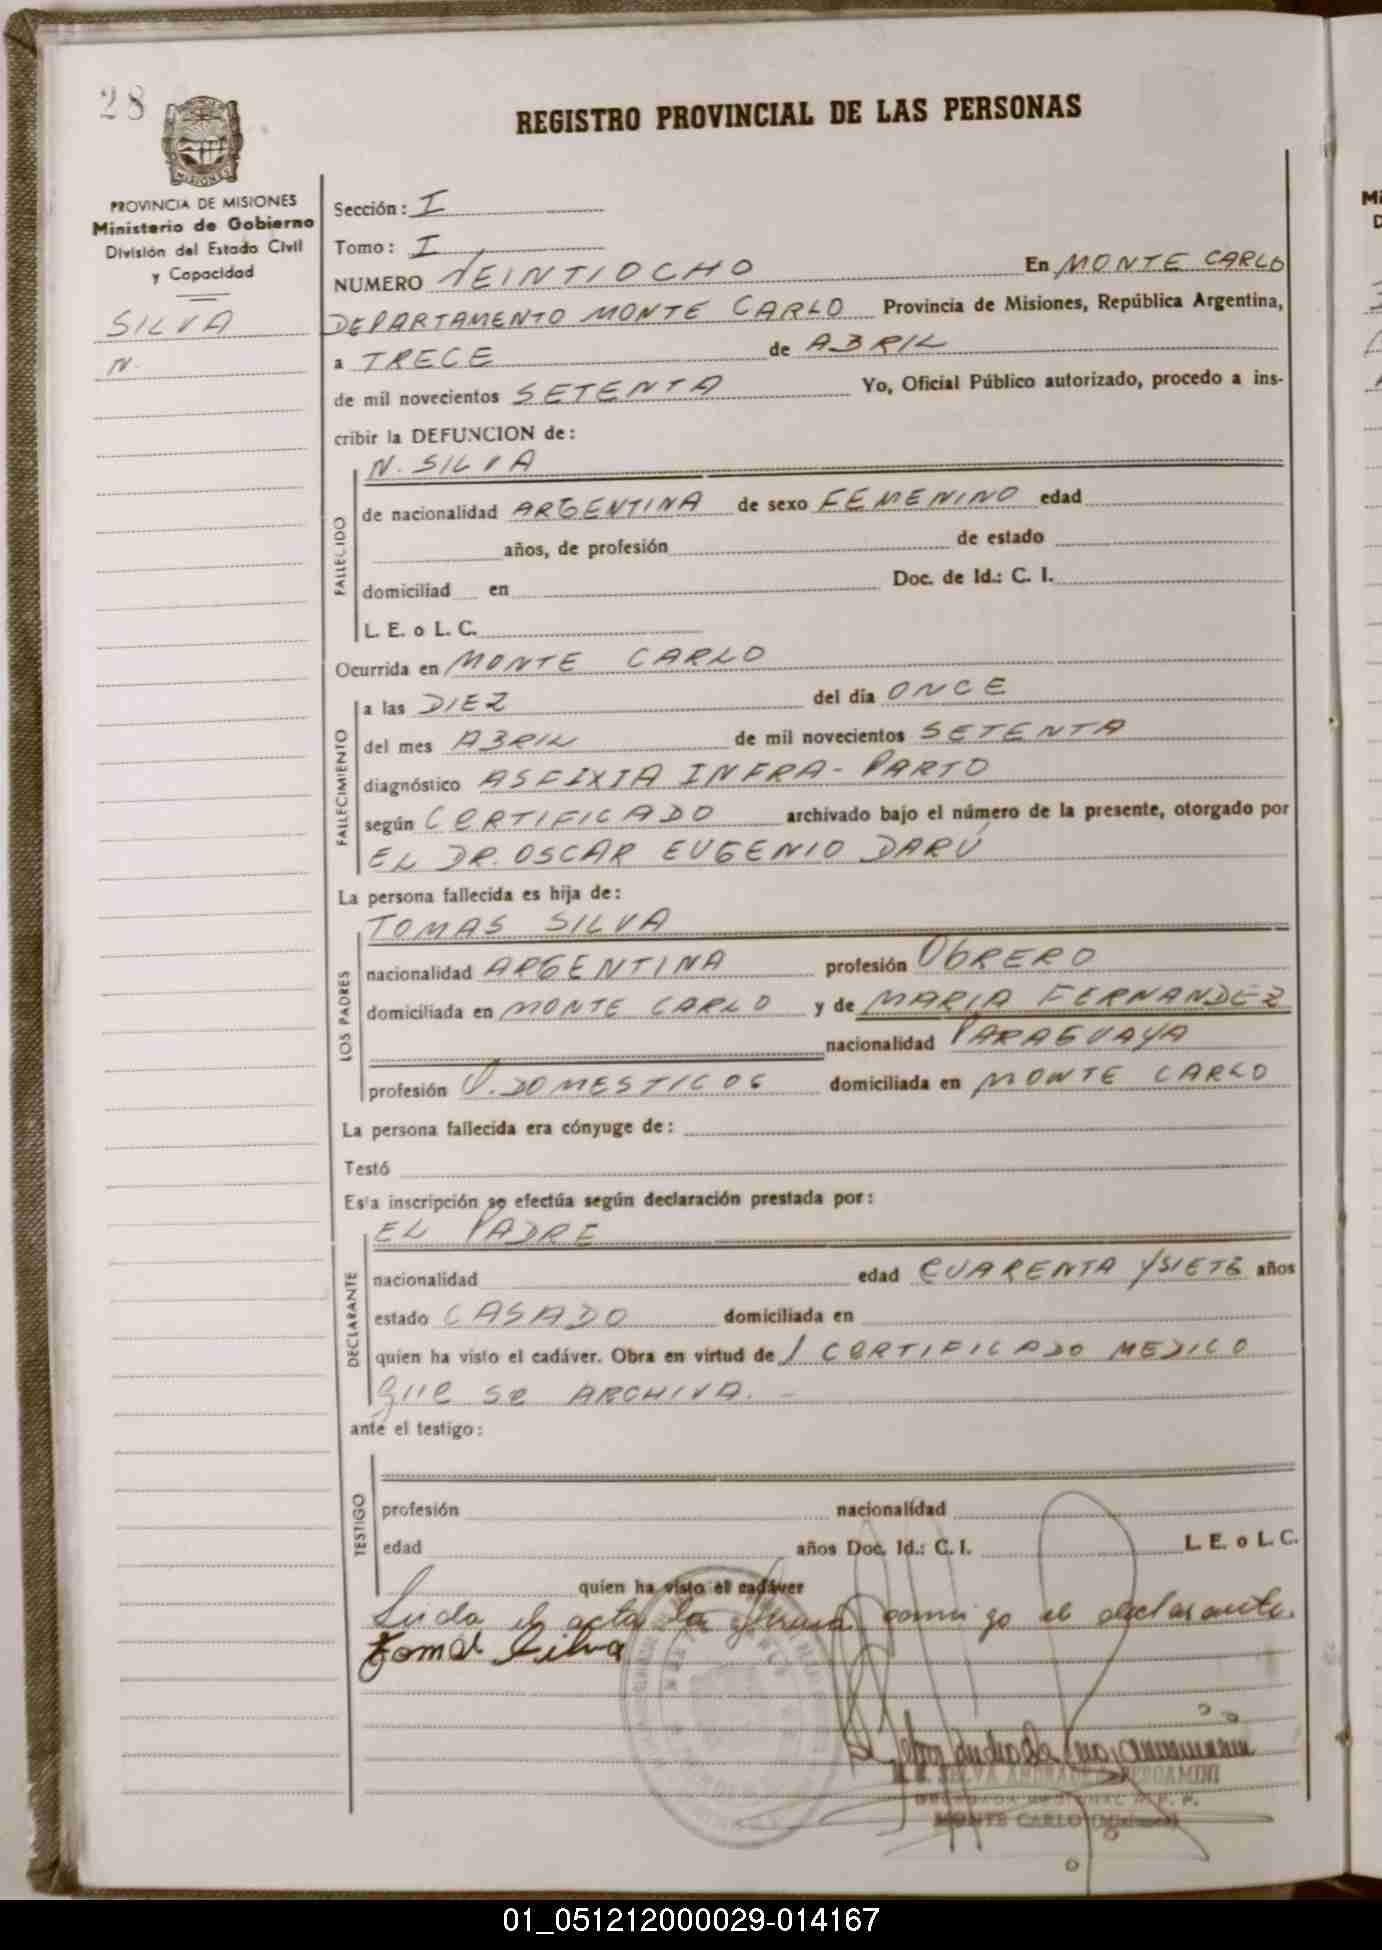 28
REGISTRO PROVINCIAL DE LAS PERSONAS
MISIONES
PROVINCIA DE MISIONES
Ministerio de Gobierno
División del Estado Civil
y Capacidad
SILVA
N.
Sección: I
Tomo: I
NUMERO VEINTIOCHO En MONTE CARLO
DEPARTAMENTO MONTE CARLO Provincia de Misiones, República Argentina,
a TRECE de ABRIL
de mil novecientos SETENTA Yo, Oficial Público autorizado, procedo a ins-
cribir la DEFUNCION de:
N. SILVA
FALLECIDO
de nacionalidad ARGENTINA de sexo FEMENINO edad
años, de profesión de estado
domiciliad en Doc. de Id.: C. I.
L. E. o L. C.
Ocurrida en MONTE CARLO
FALLECIMIENTO
a las DIEZ del día ONCE
del mes ABRIL de mil novecientos SETENTA
diagnóstico ASFIXIA INFRA-PARTO
según CERTIFICADO archivado bajo el número de la presente, otorgado por
EL DR. OSCAR EUGENIO DARÚ
La persona fallecida es hija de:
TOMAS SILVA
LOS PADRES
nacionalidad ARGENTINA profesión OBRERO
domiciliada en MONTE CARLO y de MARIA FERNANDEZ
nacionalidad PARAGUAYA
profesión Q. DOMESTICOS domiciliada en MONTE CARLO
La persona fallecida era cónyuge de:
Testó
Esta inscripción se efectúa según declaración prestada por:
EL PADRE
DECLARANTE
nacionalidad edad CUARENTA Y SIETE años
estado CASADO domiciliada en
quien ha visto el cadáver. Obra en virtud de 1 CERTIFICADO MEDICO
que se ARCHIVA.-
ante el testigo:
TESTIGO
profesión nacionalidad
edad años Doc. Id.: C. I. L. E. o L. C.
quien ha visto el cadáver
Leida el acta la firma conmigo el declarante.
Tomas Silva
SELVA ANDRADE BERGAMINI
MONTE CARLO (Misiones)
01_051212000029-014167